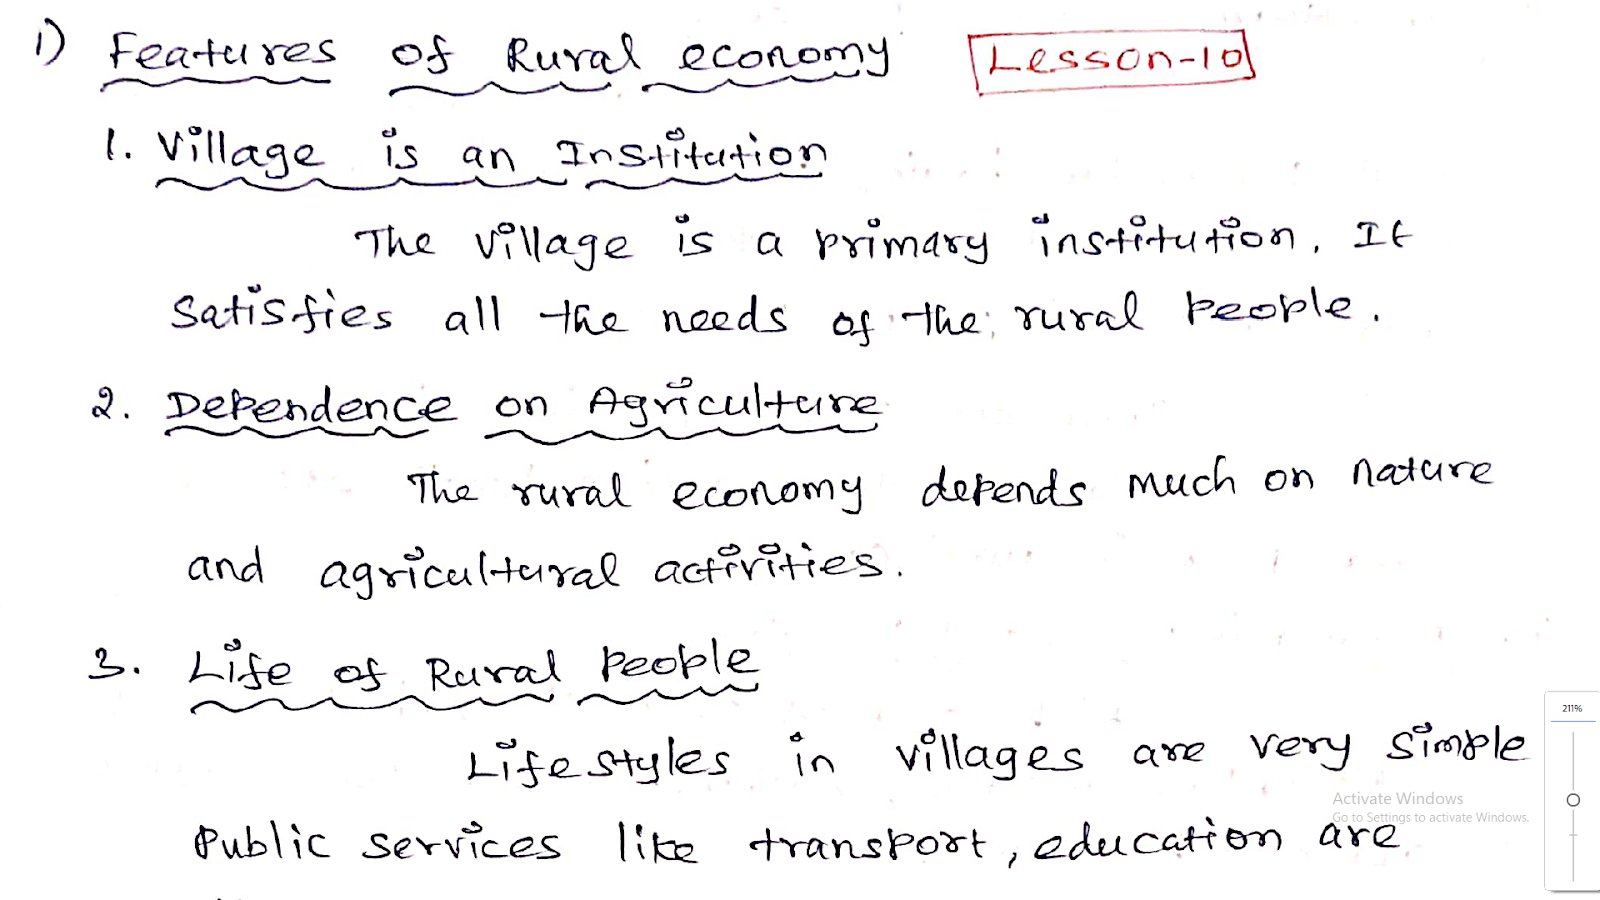 1) Features of Rural economy Lesson-10
1. Village is an Institution
The village is a primary institution. It
Satisfies all the needs of the rural people.
2. Dependence on Agriculture
The rural economy depends much on nature
and agricultural activities.
3. Life of Rural People
Lifestyles in villages are very simple
Public services like transport, education are
211%
Activate Windows
Go to Settings to activate Windows.